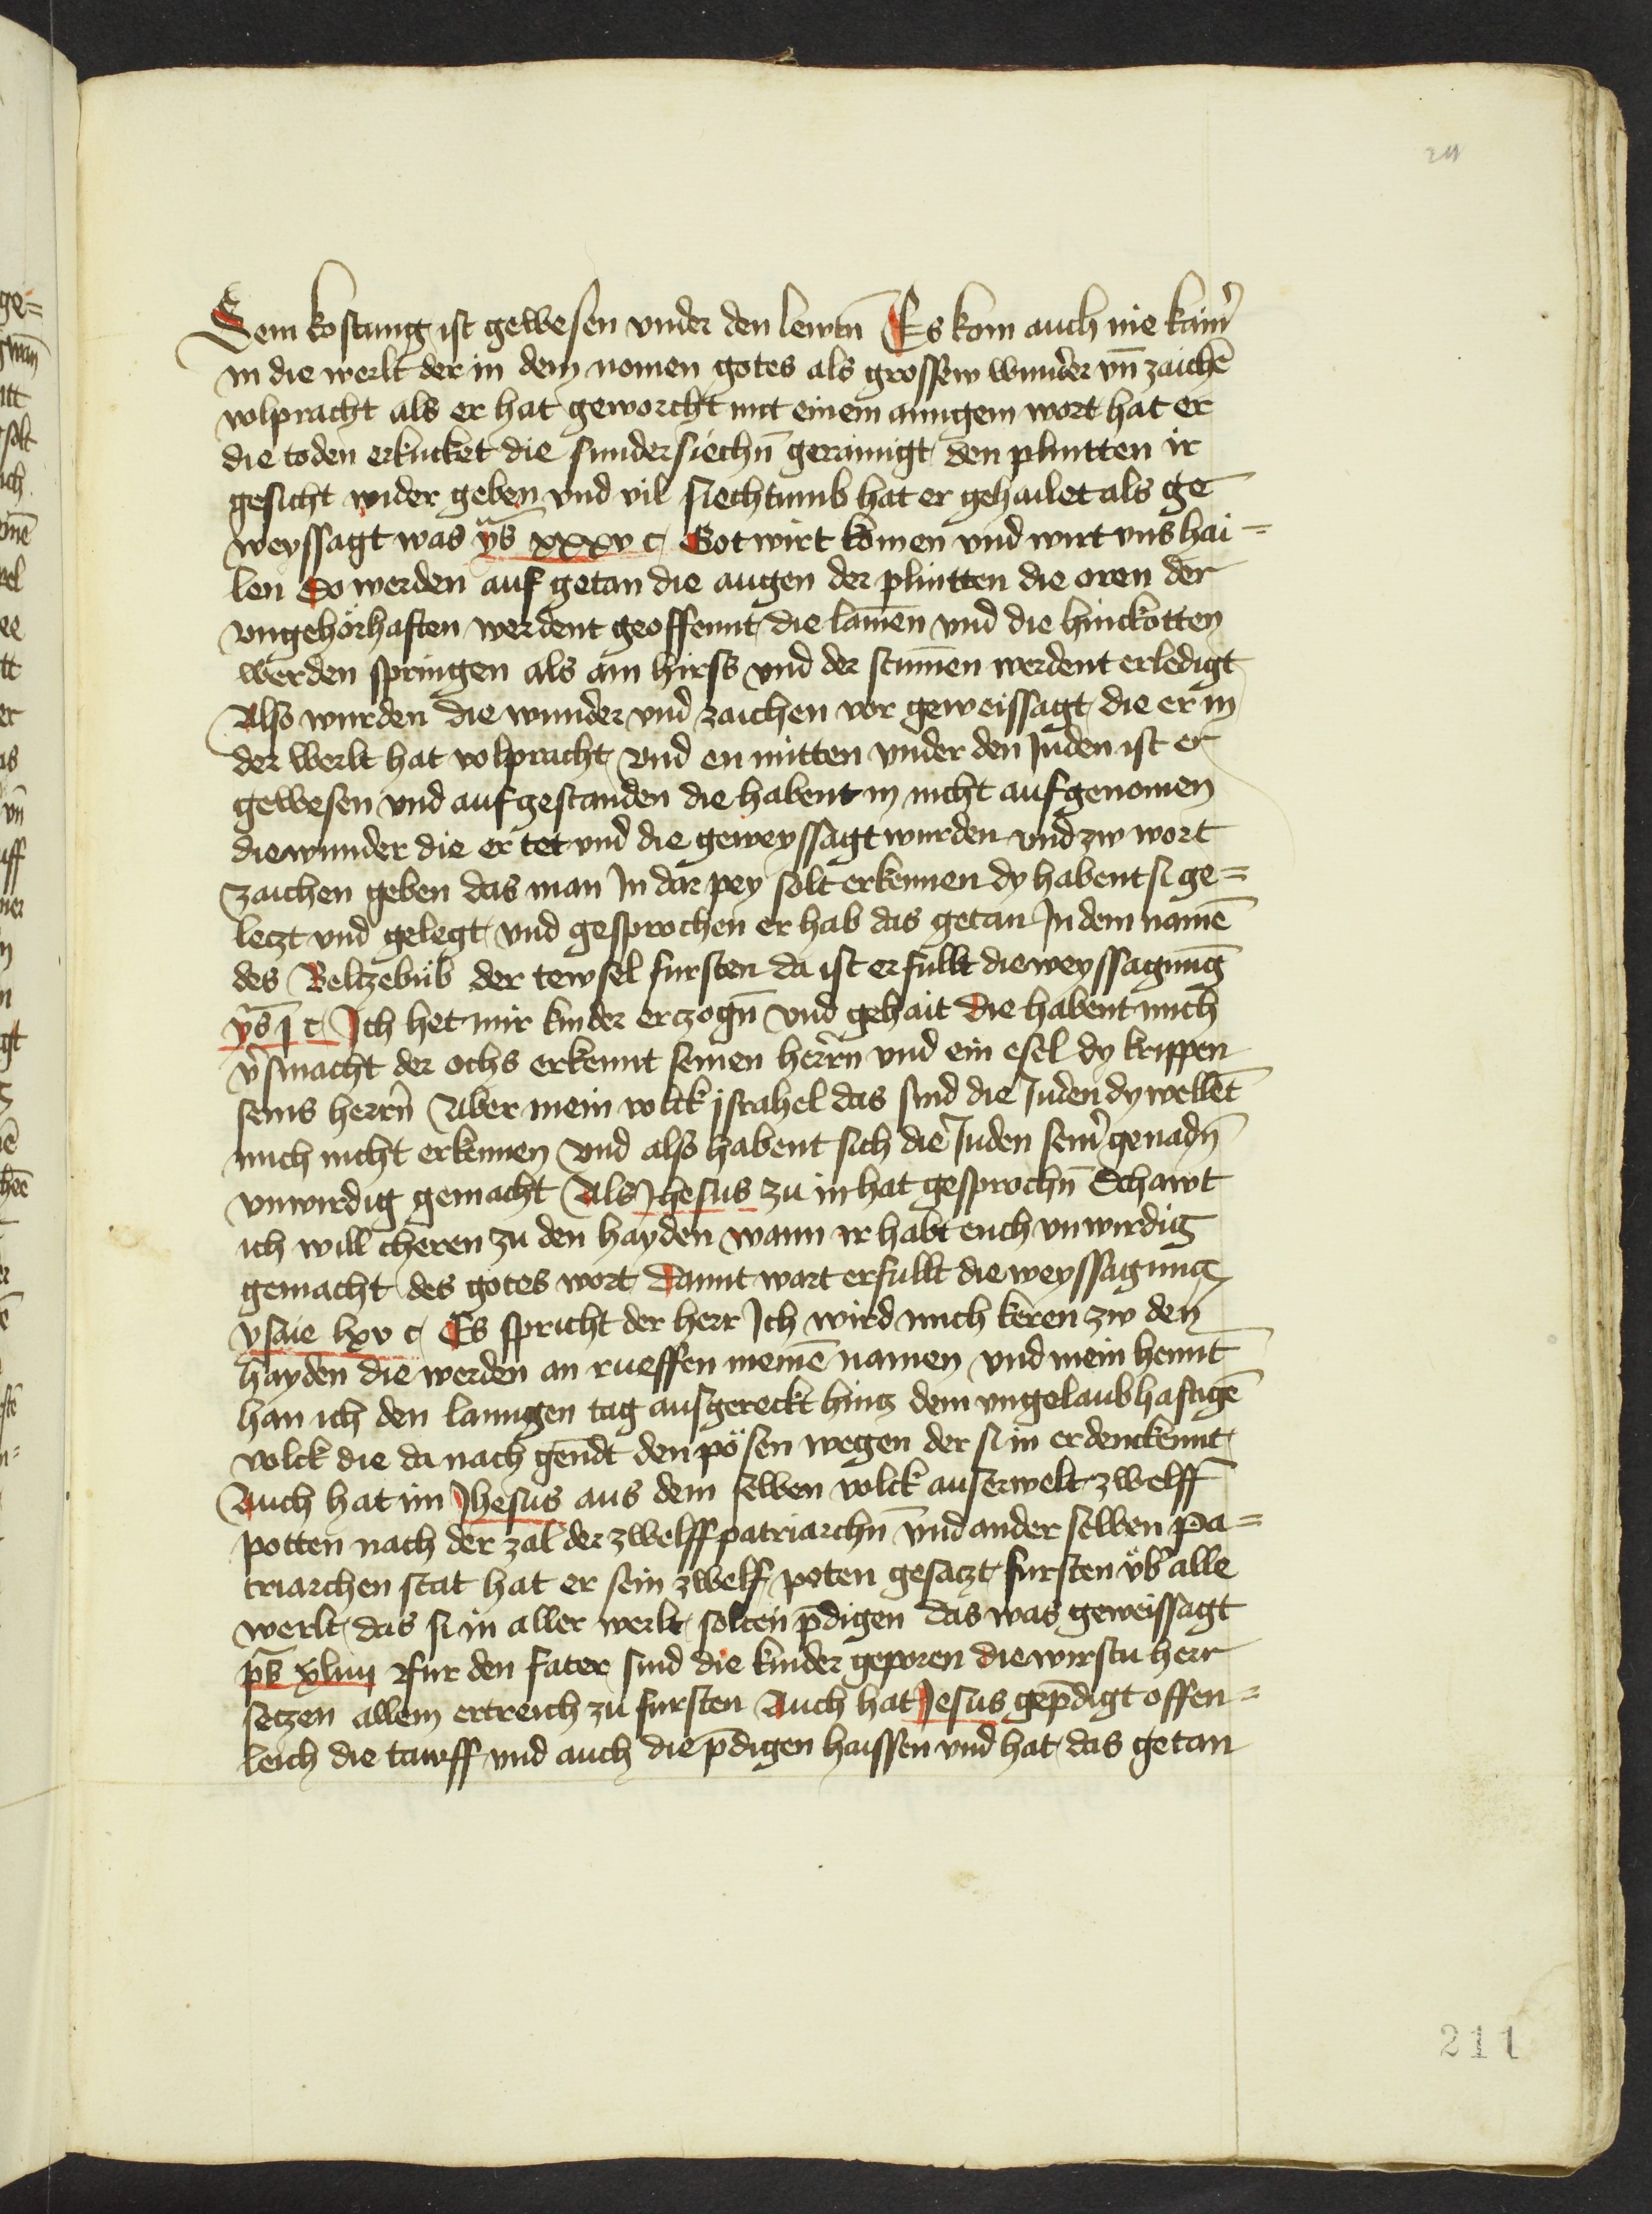 211
Sein kostung ist gewesen vnder den lewtñ Es kom auch nie kainˀ
in die werlt der in dem nomen gotes als grossew wunder vñ zaichē
volpracht als er hat geworcht mit einem ainigem wort hat er
die toden erkucket die sundersiechñ gerainigt den plintten ir
gesicht wider geben vnd vil siechtumb hat er gehailet als ge
weyssagt was ys̄ xxxv c Got wirt komen vnd wirt vns hai=
len So werden auf getan die augen der plintten die oren der
vngehörhaften werdent geoffennt die lamēn vnd die hinckotten
werden springen als ain hirss vnd der stum̄en werdent erledigt
Also wurden die wunder vnd zaichen vor geweissagt die er in
der werlt hat volpracht vnd en mitten vnder den Juden ist er
gewesen vnd aufgestanden die habent in nicht aufgenomen
die wunder die er tet vnd die geweyssagt wurden vnd zw wort
zaichen geben das man In dar pey solt erkennen dy habent si ge=
letzt vnd gelegt vnd gesprochen er hab das getan In dem namē
des Beltzebüb der tewfel fursten da ist erfullt die weyssagung
ys̄ j c Ich het mir kinder erzogñ vnd gehait die habent mich
vˀsmacht der ochs erkennt seinen herrñ vnd ein esel dy krippen
seins herrñ Aber mein volck israhel das sind die Juden dy wellēt
mich nicht erkennen vnd also habent sich die Juden seinˀ genadñ
vnwirdig gemacht Als Jhesus zu in hat gesprochñ Schawt
ich will cheren zu den hayden wann ir habt euch vnwirdig
gemacht des gotes wort damit wart erfullt die weyssagung
ysaie lxv c Es spricht der herr Ich wird mich keren zw den
hayden die werden an rueffen meinē namen vnd mein hennt
han ich den lanngen tag ausgereckt hintz dem vngelaubhaftigē
volck die da nach gendt den pösen wegen der si in erdenckennt
Auch hat im Jhesus aus dem selben volck auserwelt zwelff
potten nach der zal der zwelff patriarchñ vnd an der selben pa=
triarchen stat hat er sein zwelf poten gesatzt fursten vbˀ alle
werlt das si in aller werlt solten p̄digen das was geweissagt
ps̄ xliiij Fur den fater sind die kinder geporen die wirstu herr
setzen allem ertreich zu fursten Auch hat Jesus gep̄digt offen=
leich die tawff vnd auch die p̄digen haissen vnd hat das getan
211